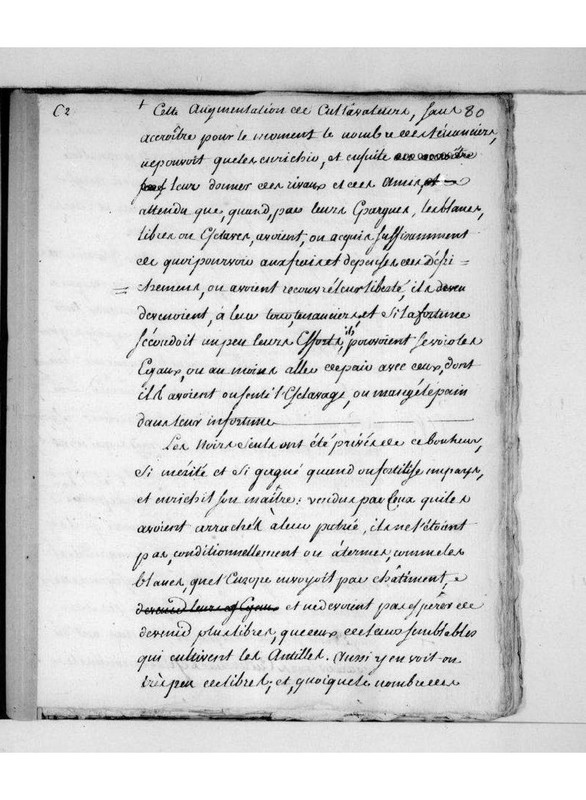 C2
+ Cette Augmentation de Cultivateurs, sans 80
accroître pour le moment le nombre des ténanciers,
ne pouvoit que les enrichir, et ensuite
leur donner des rivaux et des Amis,
attendu que, quand, par leurs Epargnes, les blancs,
libres ou Esclaves, avoient, ou acquis suffisamment
de quoi pourvoir aux fraix et depenses des Défri=
=chemens, ou avoient recouvré leur liberté, ils
devenoient, à leur tour, tenanciers, et si la fortune
secondoit un peu leurs Efforts, ils pouvoient se voir les
Egaux, ou au moins aller de pair avec ceux, dont
ils avoient ou senti l'Esclavage, ou mangé le pain
dans leur infortune.
Les Noirs seuls ont été privés de ce bonheur,
si mérité et si gagné quand on fertilise un pays,
et enrichit son maître: vendus par Ceux qui les
avoient arrachés à leur patrie, ils ne l'étoient
pas, conditionnellement ou à termes, comme les
blancs, que l'Europe envoyoit par châtiment,
et ne devoient pas espérer de
devenir plus libres, que ceux de leurs semblables
qui cultivent les Antilles. Aussi y en voit-on
très peu de libres; et, quoique le nombre des